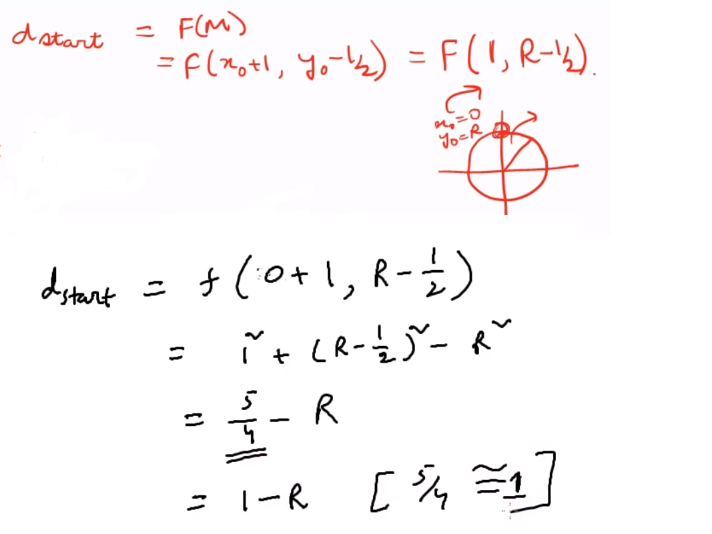 d start = F(M)
= F(x₀+1, y₀-½) = F(1, R-½).
x₀=0
y₀=R
dstart = f(0+1, R-½)
= 1² + (R-½)² - R²
= 5/4 - R
= 1-R [5/4 ≅ 1]